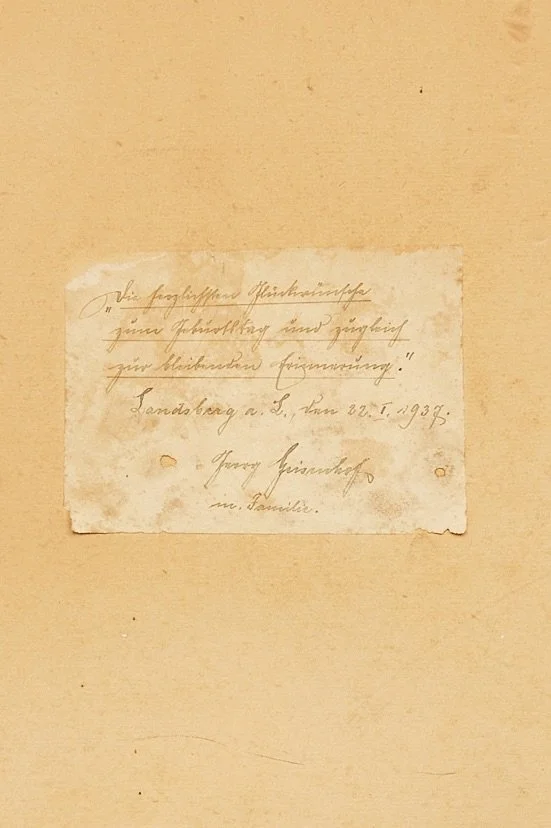 „Die herzlichsten Glückwünsche
zum Geburtstag und zugleich
zur bleibenden Erinnerung."
Landsberg a. L., den 22. I. 1937.
Georg Geisenhof
m. Familie.